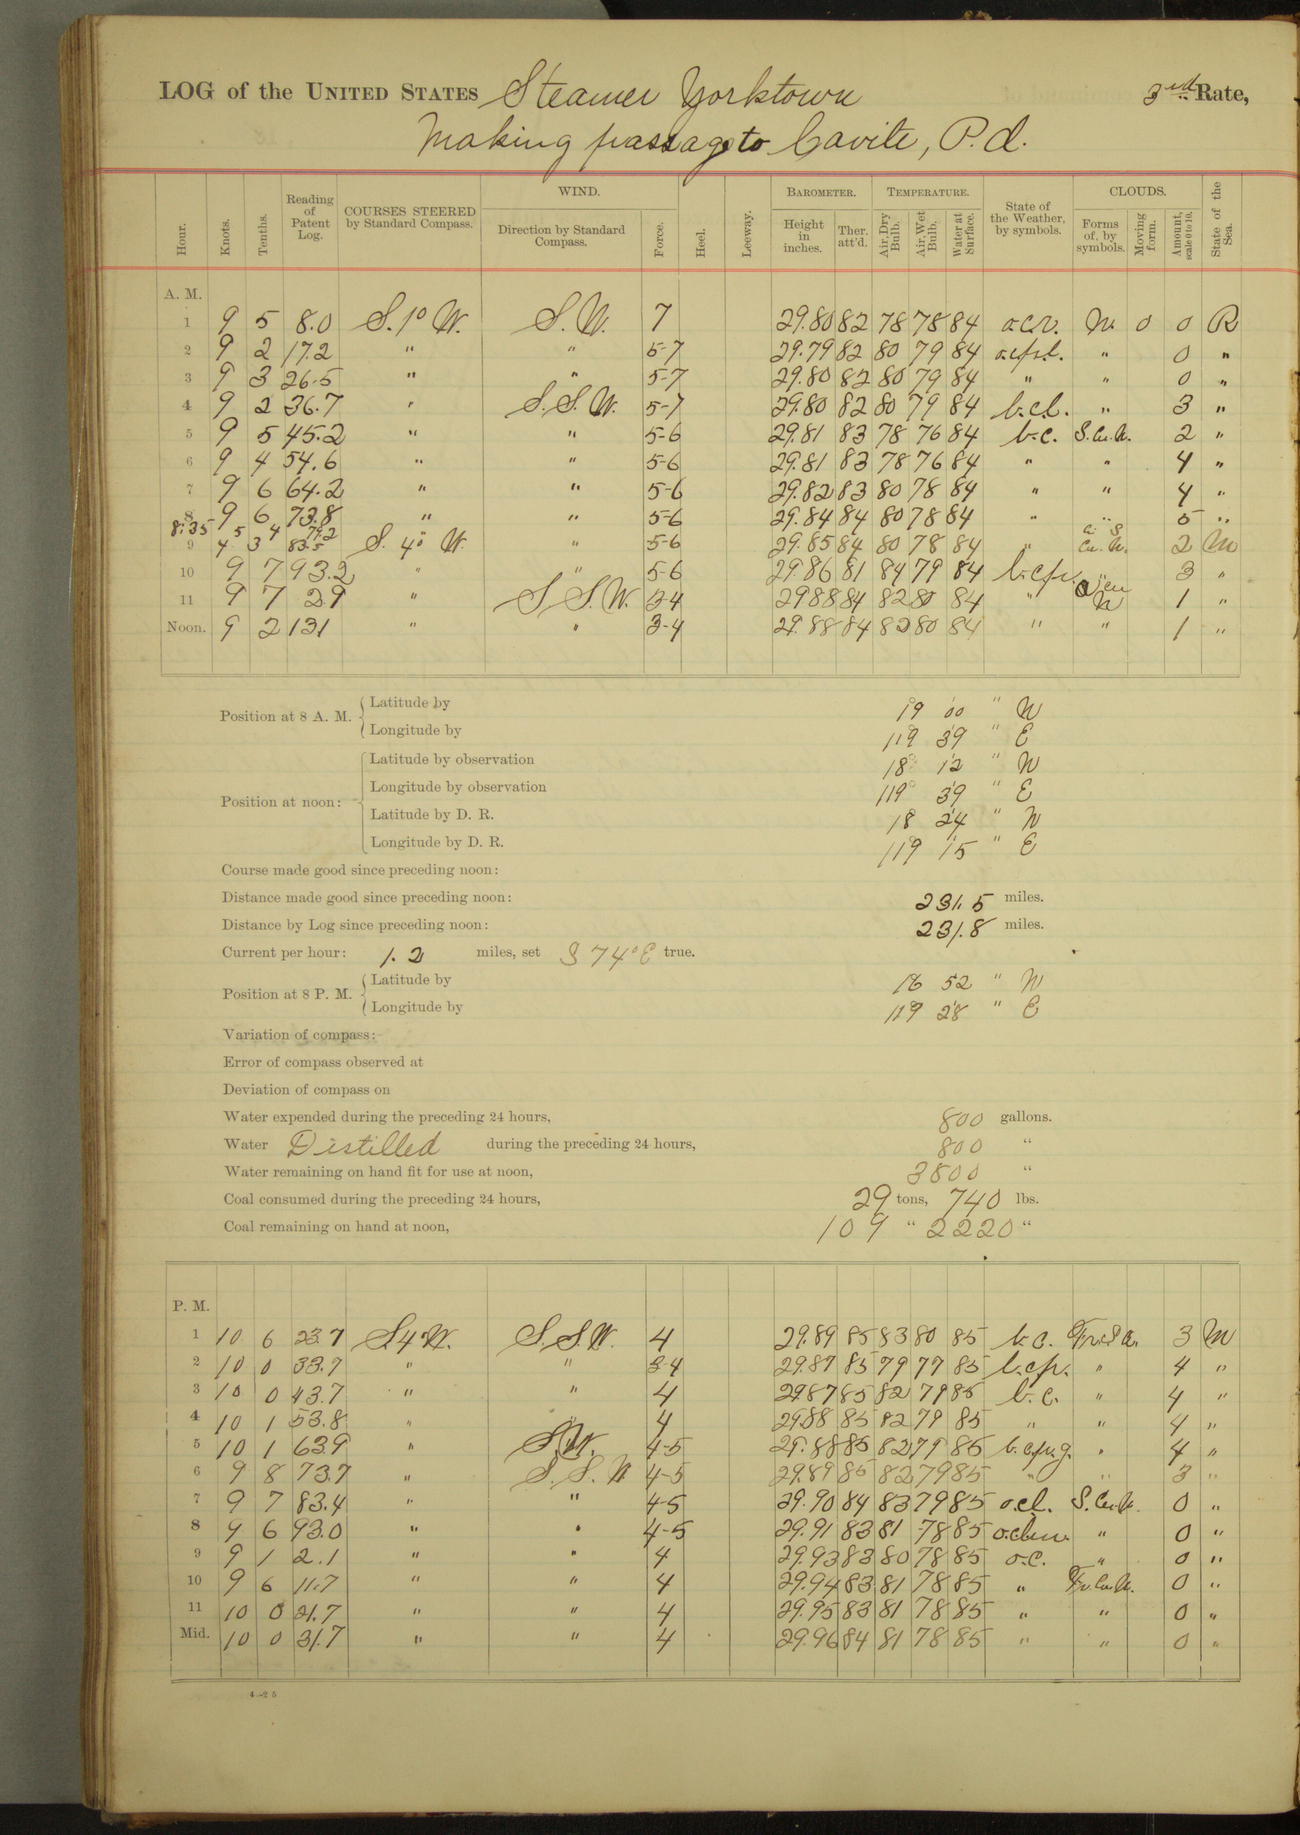 LOG of the UNITED STATES Steamer Yorktown 3rd Rate,
Making passage to Cavite, P.I.
Hour. Knots. Tenths. Reading of Patent Log. COURSES STEERED by Standard Compass. WIND. Direction by Standard Compass. Force. Heel. Leeway. BAROMETER. Height in inches. Ther. att'd. TEMPERATURE. Air, Dry Bulb. Air, Wet Bulb. Water at Surface. State of the Weather, by symbols. CLOUDS. Forms of, by symbols. Moving form. Amount, scale 0 to 10. State of the Sea.
A. M.
1 9 5 8.0 S. 1° W. S. W. 7 29.80 82 78 78 84 o.c.r. N. 0 0 R
2 9 2 17.2 " " 5-7 29.79 82 80 79 84 " 0 "
3 9 3 26.5 " " 5-7 29.80 82 80 79 84 " " 0 "
4 9 2 36.7 " S. S. W. 5-7 29.80 82 80 79 84 b.c.l. " 3 "
5 9 5 45.2 " " 5-6 29.81 83 78 76 84 b.c. S. Cu. N. 2 "
6 9 4 54.6 " " 5-6 29.81 83 78 76 84 " " 4 "
7 9 6 64.2 " " 5-6 29.82 83 80 78 84 " " 4 "
8 9 6 73.8 " " 5-6 29.84 84 80 78 84 " " 5 "
8:35 5 4 79.2
9 4 3 83.5 S. 4° W. " 5-6 29.85 84 80 78 84 " Ci. S. Cu. N. 2 M
10 9 7 93.2 " " 5-6 29.86 81 84 79 84 b.c.p. " 3 "
11 9 7 2.9 " S. S. W. 3-4 29.88 84 82 80 84 " N 1 "
Noon. 9 2 131 " " 3-4 29.88 84 82 80 84 " " 1 "
Position at 8 A. M. Latitude by 19° 00' " N
Longitude by 119° 39' " E
Position at noon: Latitude by observation 18° 12' " N
Longitude by observation 119° 39' " E
Latitude by D. R. 18° 24' " N
Longitude by D. R. 119° 15' " E
Course made good since preceding noon:
Distance made good since preceding noon: 231.5 miles.
Distance by Log since preceding noon: 231.8 miles.
Current per hour: 1.2 miles, set S 74° E true.
Position at 8 P. M. Latitude by 16 52 " N
Longitude by 119° 28' " E
Variation of compass:
Error of compass observed at
Deviation of compass on
Water expended during the preceding 24 hours, 800 gallons.
Water Distilled during the preceding 24 hours, 800 "
Water remaining on hand fit for use at noon, 3800 "
Coal consumed during the preceding 24 hours, 29 tons, 740 lbs.
Coal remaining on hand at noon, 109 " 2220 "
P. M.
1 10 6 23.7 S. 4 W. S. S. W. 4 29.89 85 83 80 85 b.c. 3 M
2 10 0 33.7 " " 3-4 29.87 85 79 77 85 b.c.p. " 4 "
3 10 0 43.7 " " 4 29.87 85 82 79 85 b.c. " 4 "
4 10 1 53.8 " " 4 29.88 85 82 79 85 " " 4 "
5 10 1 63.9 " S.W. 4-5 29.88 85 82 79 85 b.c.p.q. " 4 "
6 9 8 73.7 " S. S. W 4-5 29.89 85 82 79 85 " " 3 "
7 9 7 83.4 " " 4-5 29.90 84 83 79 85 o.c.l. S. Cu. N. 0 "
8 9 6 93.0 " " 4-5 29.91 83 81 78 85 " 0 "
9 9 1 2.1 " " 4 29.93 83 80 78 85 o.c. " 0 "
10 9 6 11.7 " " 4 29.94 83 81 78 85 " Fr. Cu. N. 0 "
11 10 0 21.7 " " 4 29.95 83 81 78 85 " " 0 "
Mid. 10 0 31.7 " " 4 29.96 84 81 78 85 " " 0 "
4-25